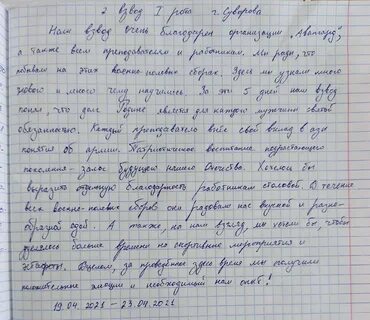 2 взвод 1 рота г. Суворова
Наш взвод очень благодарен организации „Авангард",
а также всем преподавателям и работникам. Мы рады, что
побывали на этих военно-полевых сборах. Здесь мы узнали много
нового и много чему научились. За эти 5 дней наш взвод
понял, что долг Родине является для каждого мужчины святой
обязанностью. Каждый преподаватель внёс свой вклад в азы
понятия об армии. Патриотическое воспитание подрастающего
поколения - залог будущего нашего Отечества. Хотелось бы
выразить отдельную благодарность работникам столовой. В течение
всех военно-полевых сборов они радовали нас вкусной и разно-
образной едой. А также, на наш взгляд, мы хотели бы, чтобы
уделялось больше времени на спортивные мероприятия и
эстафеты. В целом, за проведённое здесь время мы получили
положительные эмоции и необходимый нам опыт!
19.04.2021 - 23.04.2021